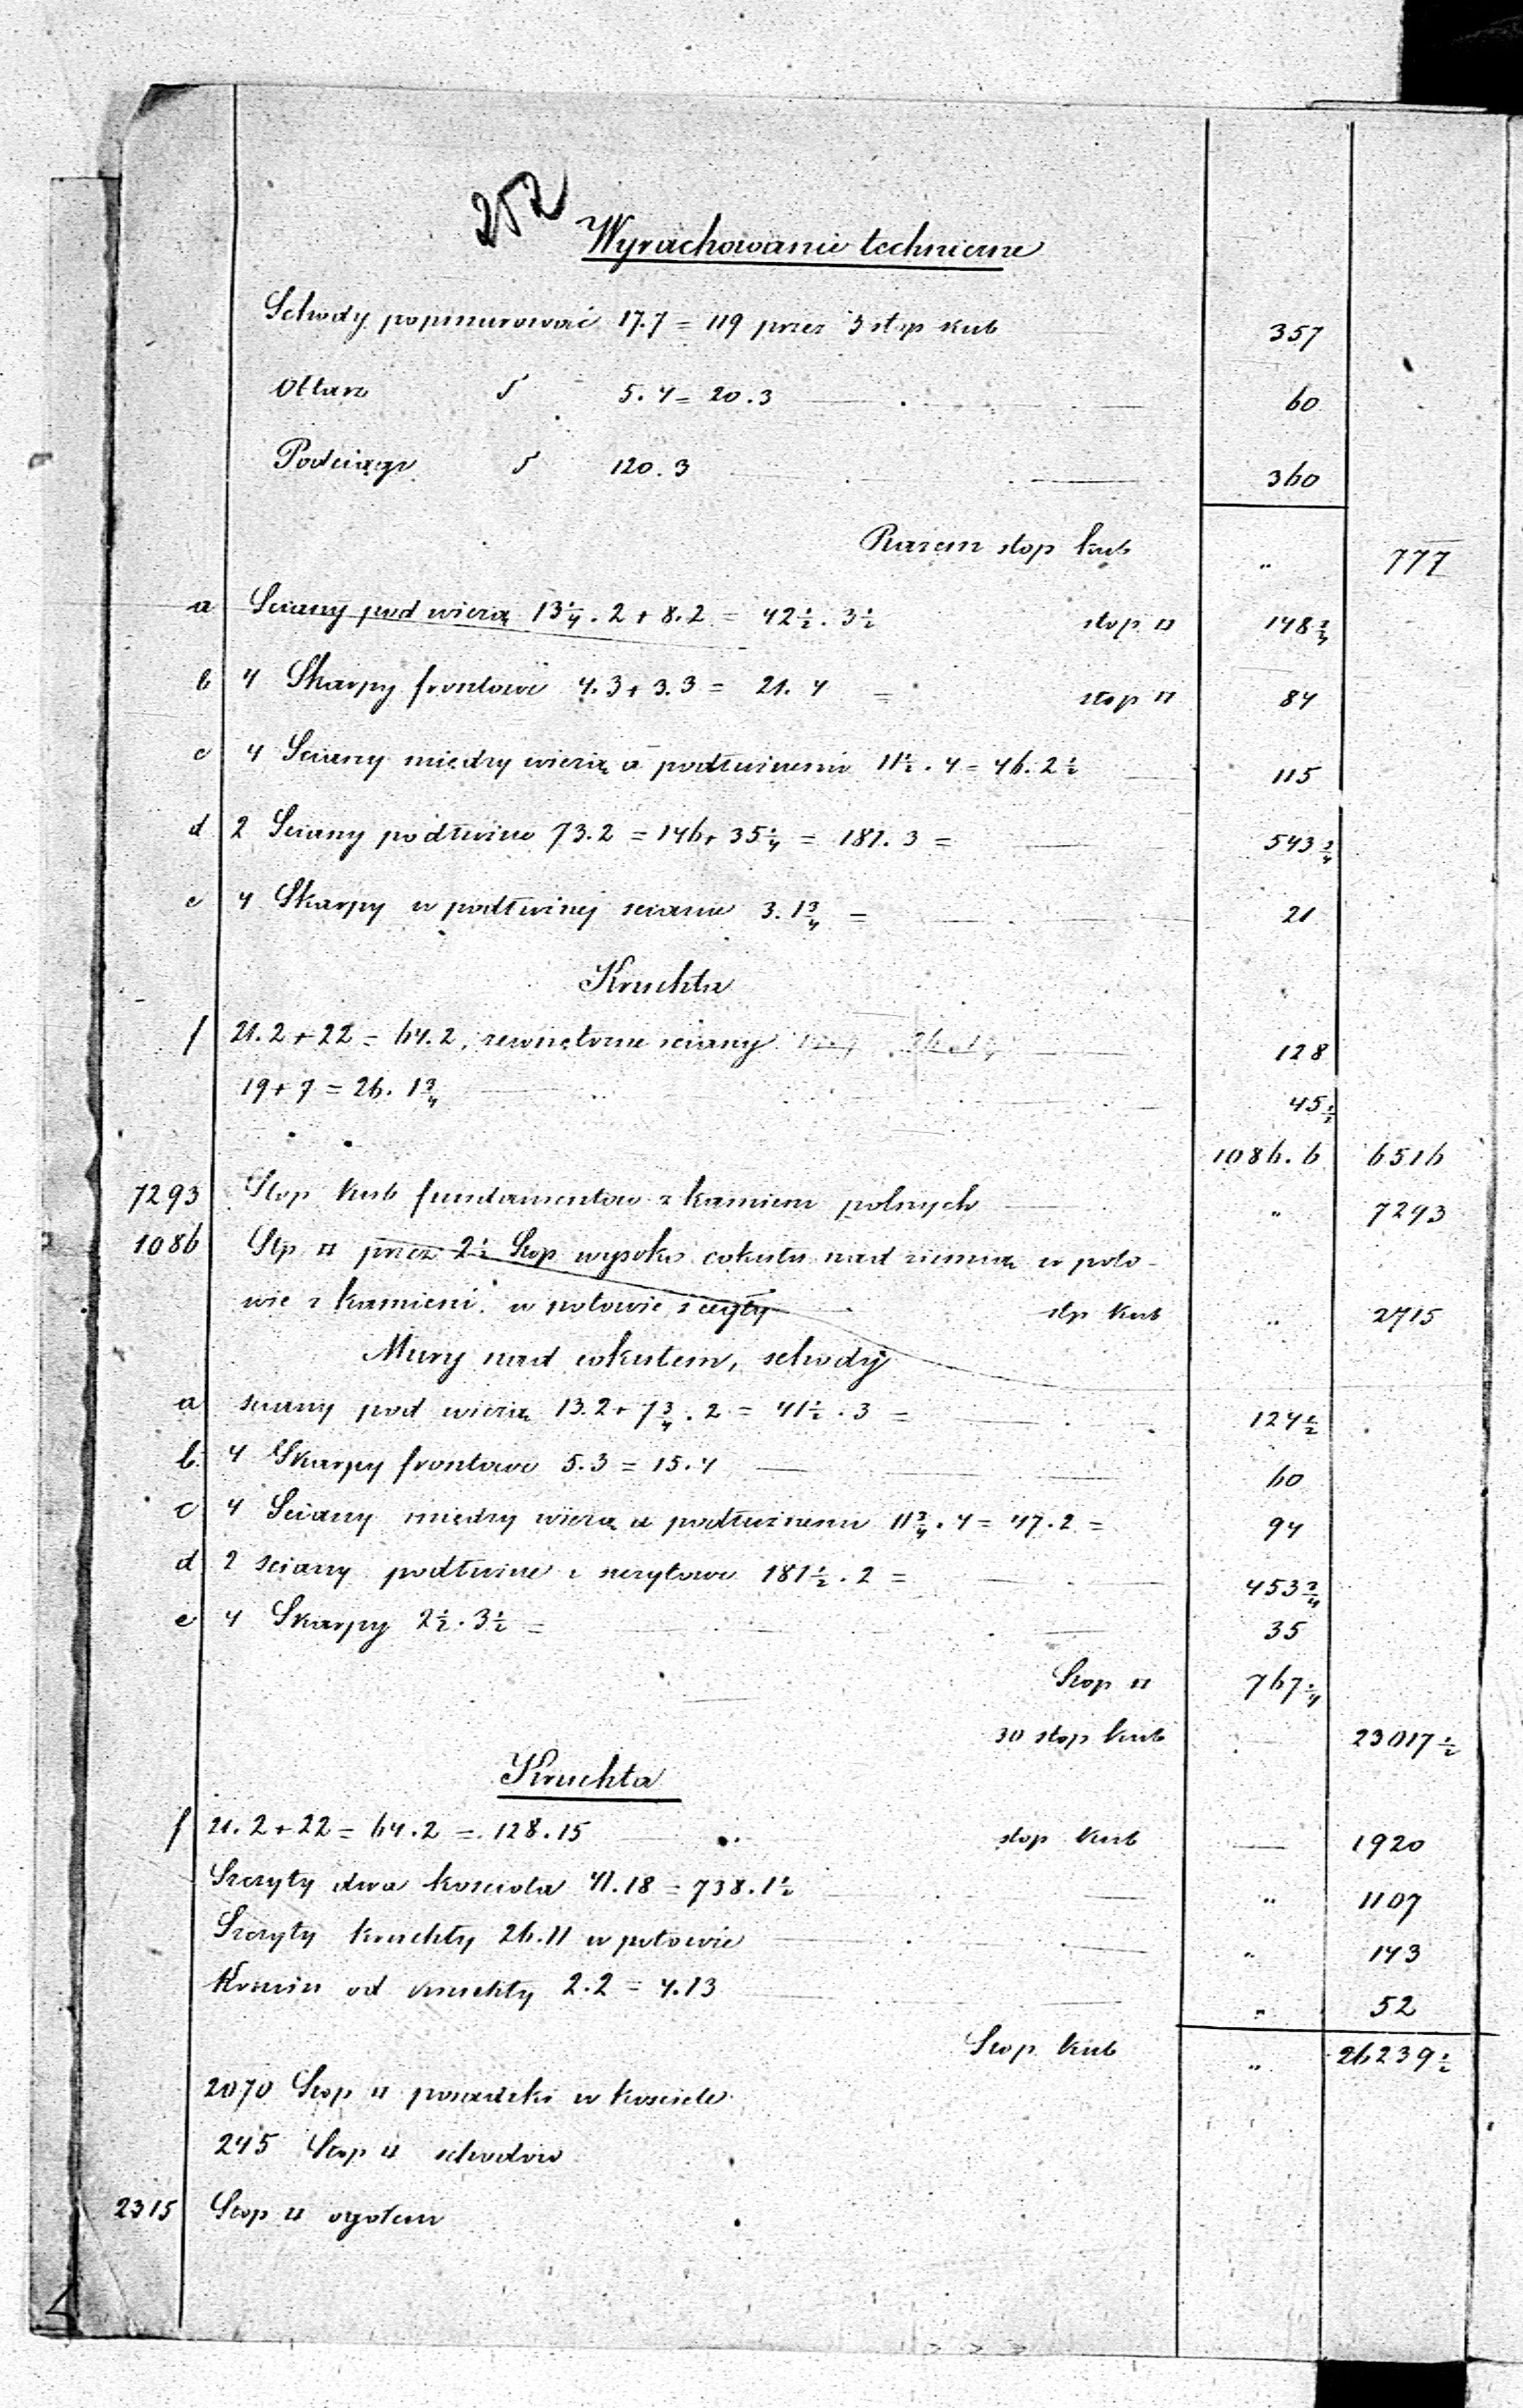 252
Wyrachowanie techniczne
Schody popmurować 17.7 = 119 przez 3 stop kub 357
Ołtarz 5 5.4 = 20.3 60
Podciągi 5 120.3 360
Razem stop kub " 777
a Sciany pod wieżą 13¼.2 + 8.2 = 42½.3½ stop □ 148¾
b 4 Skarpy frontowe 4.3 + 3.3 = 21.4 = stop □ 84
c 4 Sciany między wieżą a podłużnemi 11½.4 = 46.2½ 115
d 2 Sciany podłużne 73.2 = 146 + 35¼ = 181.3 = 543¾
e 4 Skarpy w podłużnej scianie 3.1¾ = 21
Kruchta
f 21.2 + 22 = 64.2, zewnętrzne sciany 128
19 + 7 = 26.1¾ 45½
1086.6 6516
7293 Stop kub fundamentów z kamieni polnych " 7293
1086 Stp □ przez 2½ Stop wysoko cokułu nad ziemią w poło-
wie z kamieni w połowie z cegły stp kub " 2715
Mury nad cokułem, schody
a sciany pod wieżą 13.2 + 7¾.2 = 41½.3 = 124½
b. 4 Skarpy frontowe 5.3 = 15.4 60
c 4 Sciany między wieżą a podłużnemi 11¾.4 = 47.2 = 94
d 2 sciany podłużne i szczytowe 181½.2 = 453¾
e 4 Skarpy 2½.3½ = 35
Stop □ 767¼
30 stop kub 23017½
Kruchta
f 21.2 + 22 = 64.2 = 128.15 stop kub 1920
Szczyty dwa kosciola 41.18 = 738.1½ " 1107
Szczyty kruchty 26.11 w połowie " 143
Komin od kruchty 2.2 = 4.13 " 52
Stop kub " 26239½
2070 Stop □ posadzki w kosciele
245 Stop □ schodów
2315 Stop □ ogółem